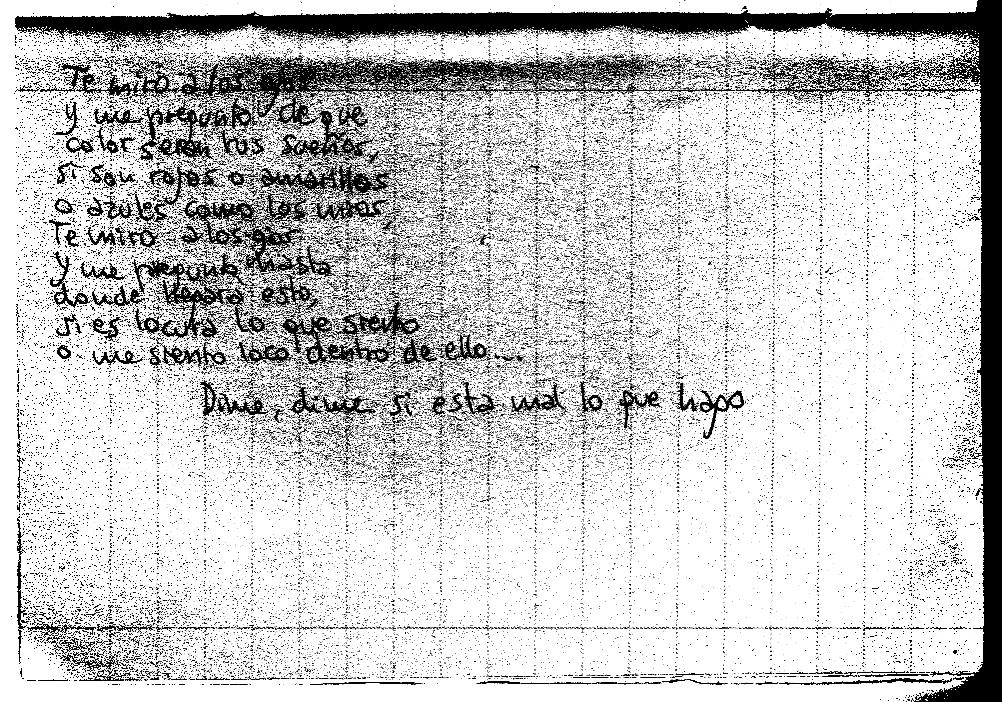 Te miro a los ojos
Y me pregunto de que
color seran tus sueños,
si son rojos o amarillos
o azules como los míos,
Te miro a los ojos
Y me pregunto hasta
donde llegará esto,
si es locura lo que siento
o me siento loco dentro de ello...
Dime, dime si esta mal lo que hago